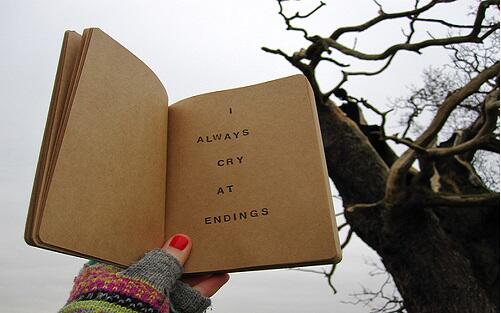 I
ALWAYS
CRY
AT
ENDINGS